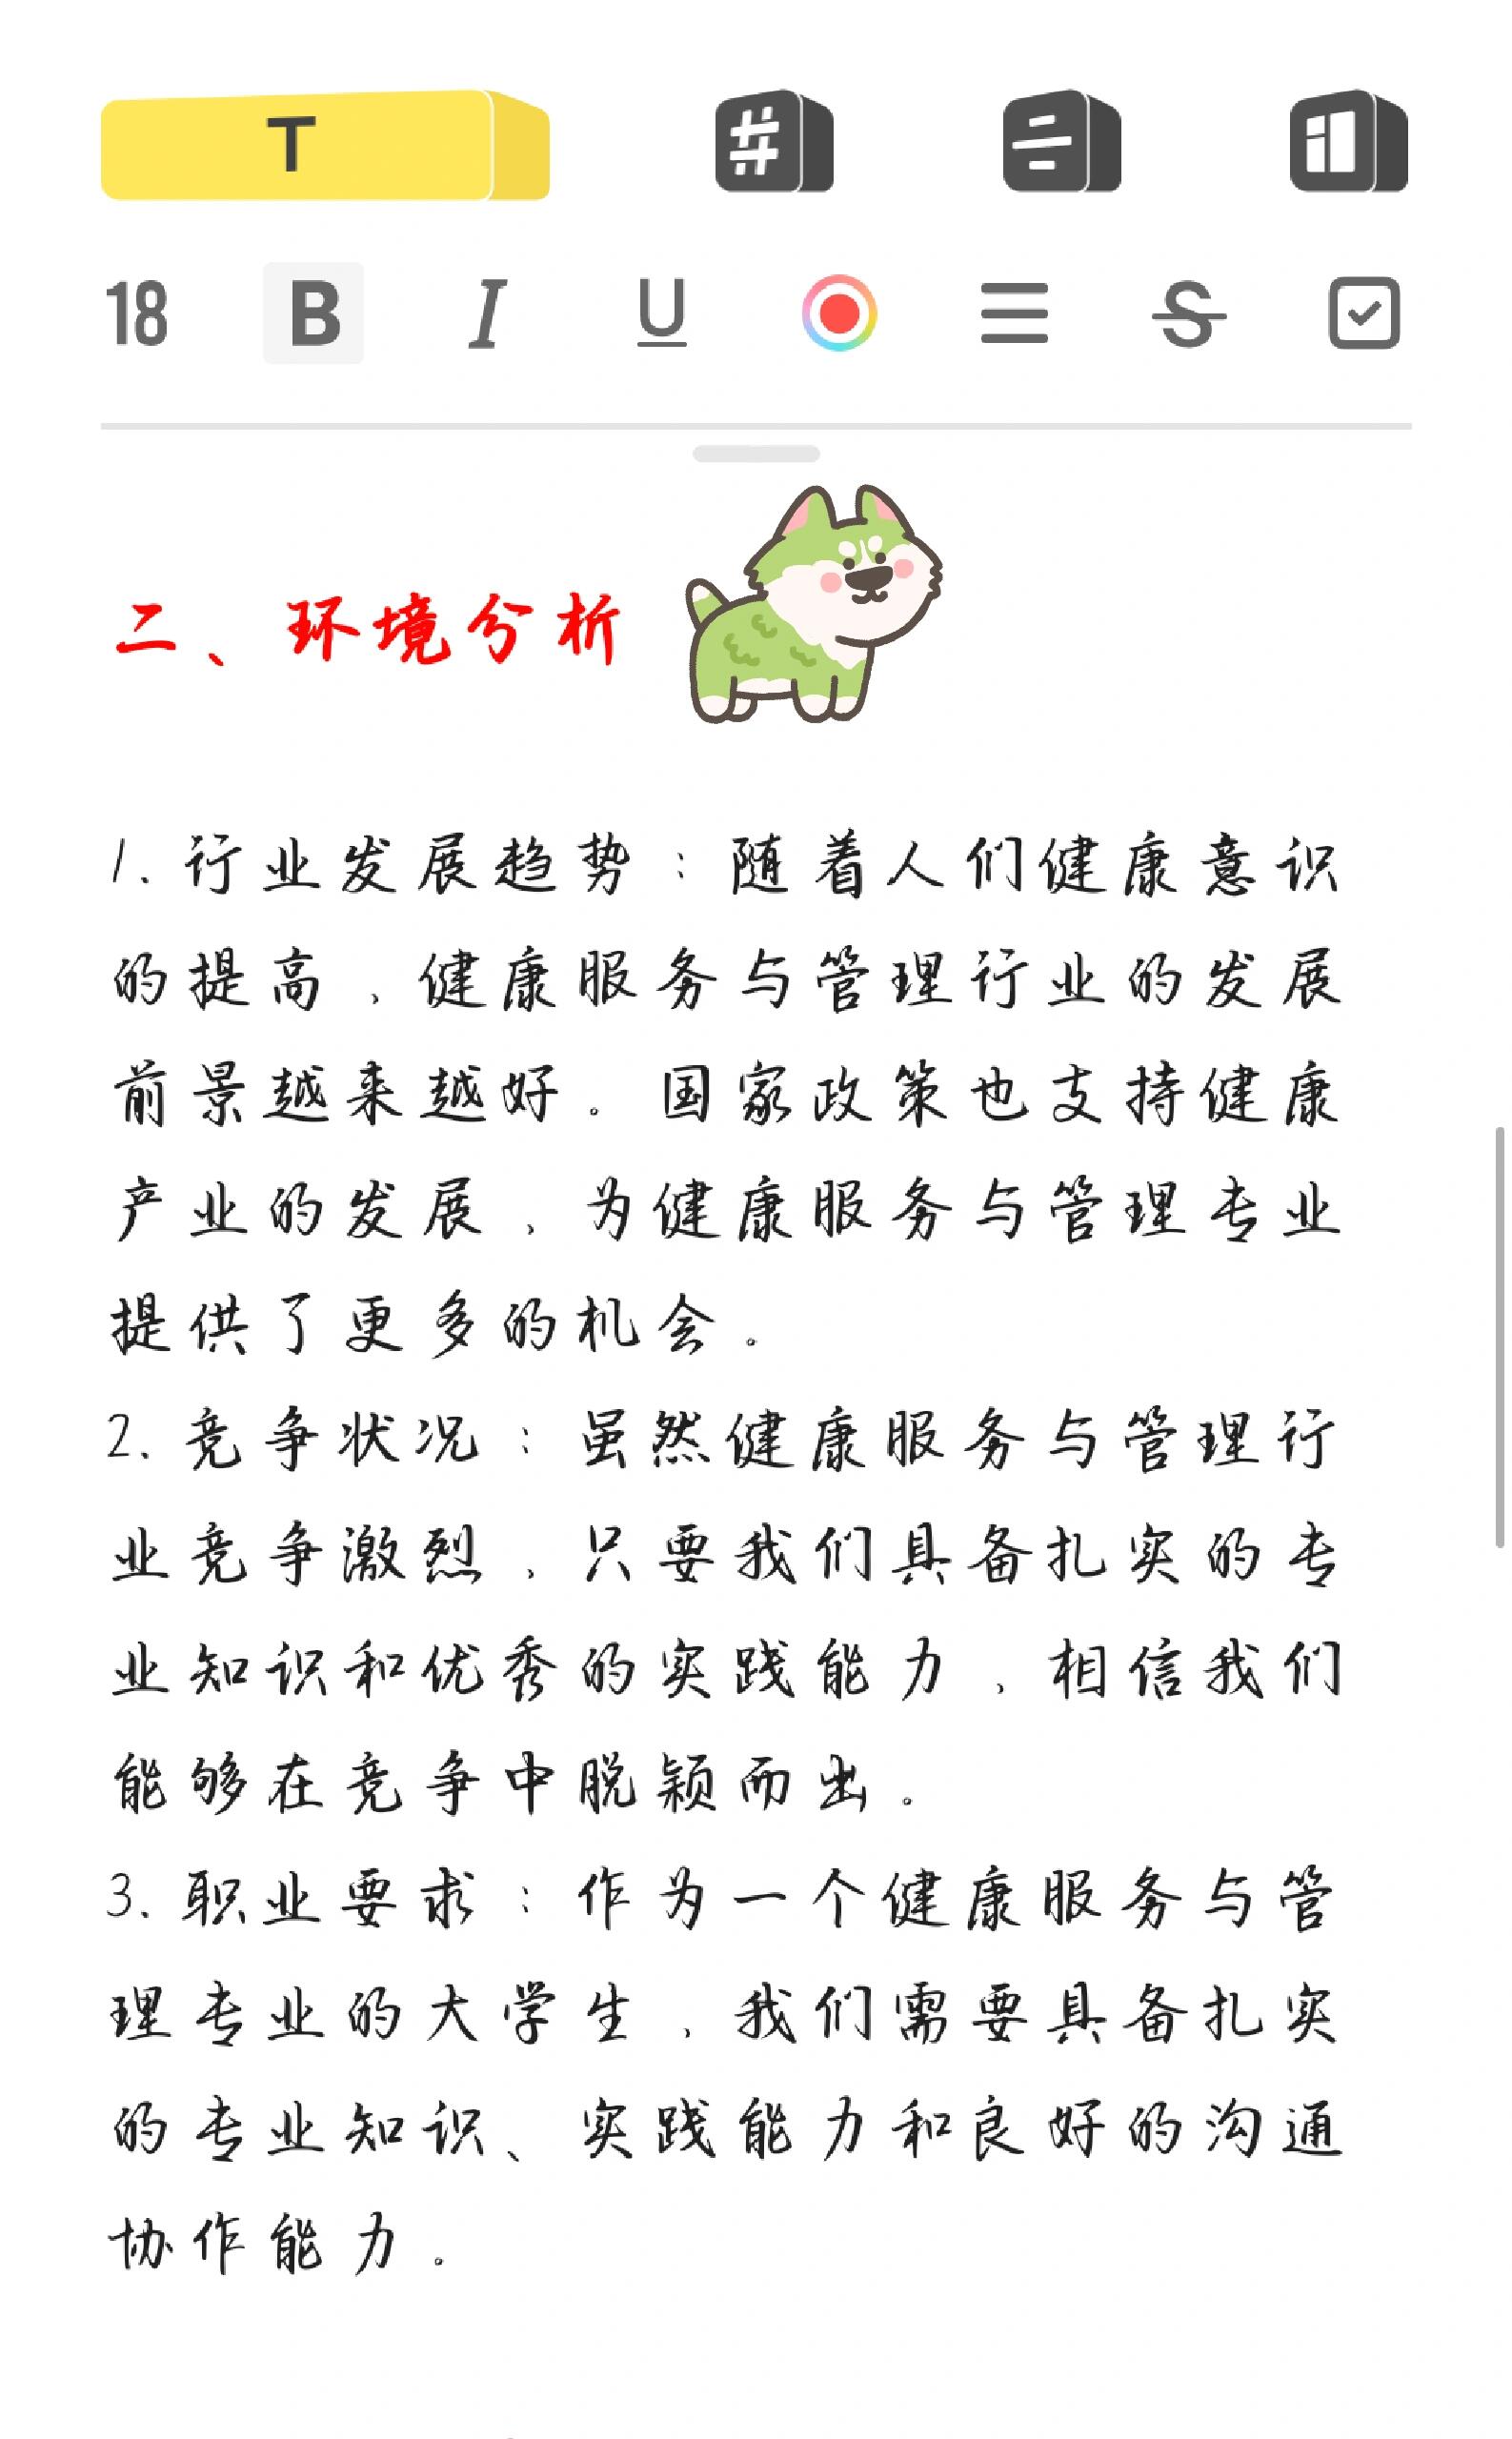 T
18 B I U S
二、环境分析
1. 行业发展趋势：随着人们健康意识
的提高，健康服务与管理行业的发展
前景越来越好。国家政策也支持健康
产业的发展，为健康服务与管理专业
提供了更多的机会。
2. 竞争状况：虽然健康服务与管理行
业竞争激烈，只要我们具备扎实的专
业知识和优秀的实践能力，相信我们
能够在竞争中脱颖而出。
3. 职业要求：作为一个健康服务与管
理专业的大学生，我们需要具备扎实
的专业知识、实践能力和良好的沟通
协作能力。